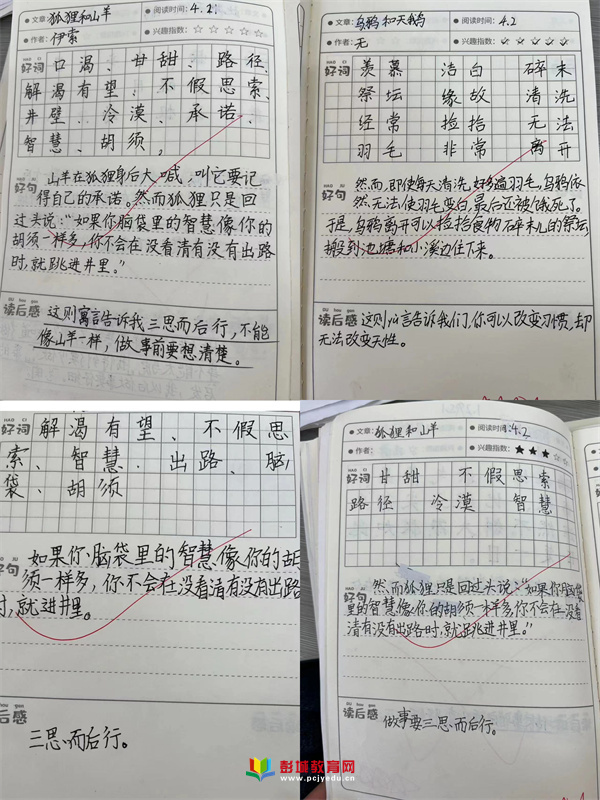 文章：狐狸和山羊 阅读时间：4.2.
作者：伊索 兴趣指数：☆☆☆☆☆
HAO CI
好词 口渴、甘甜、路径
解渴有望、不假思索、
井壁、冷漠、承诺、
智慧、胡须，
好句 山羊在狐狸身后大喊，叫它要记
得自己的承诺。然而狐狸只是回
过头说："如果你脑袋里的智慧像你的
胡须一样多，你不会在没看清有没有出路
时，就跳进井里。"
读后感 这则寓言告诉我三思而后行，不能
像山羊一样，做事前要想清楚。
文章：乌鸦和天鹅 阅读时间：4.2
作者：无 兴趣指数：☆☆☆☆☆
HAO CI
好词 羡慕 洁白 碎末
祭坛 缘故 清洗
经常 捡拾 无法
羽毛 非常 离开
好句 然而，即使每天清洗好多遍羽毛，乌鸦依
然无法使羽毛变白，最后还被饿死了。
于是，乌鸦离开可以捡拾食物碎末儿的祭坛，
搬到池塘和小溪边住下来。
读后感 这则寓言告诉我们，你可以改变习惯，却
无法改变天性。
HAO CI
好词 解渴有望、不假思
索、智慧、出路、脑
袋、胡须
好句 如果你脑袋里的智慧像你的胡
须一样多，你不会在没看清有没有出路
时，就进井里。
后感
三思而后行。
文章：狐狸和山羊 阅读时间：4.2
作者： 兴趣指数：★★★☆☆
HAO CI
好词 甘甜 不假思索
路径 冷漠 智慧
好句 然而狐狸只是回过头说："如果你脑袋
里的智慧像你的胡须一样多，你不会在没看
清有没有出路时，就跳进井里。"
读后感 做事要三思而后行。
彭城教育网
www.pcjyedu.cn